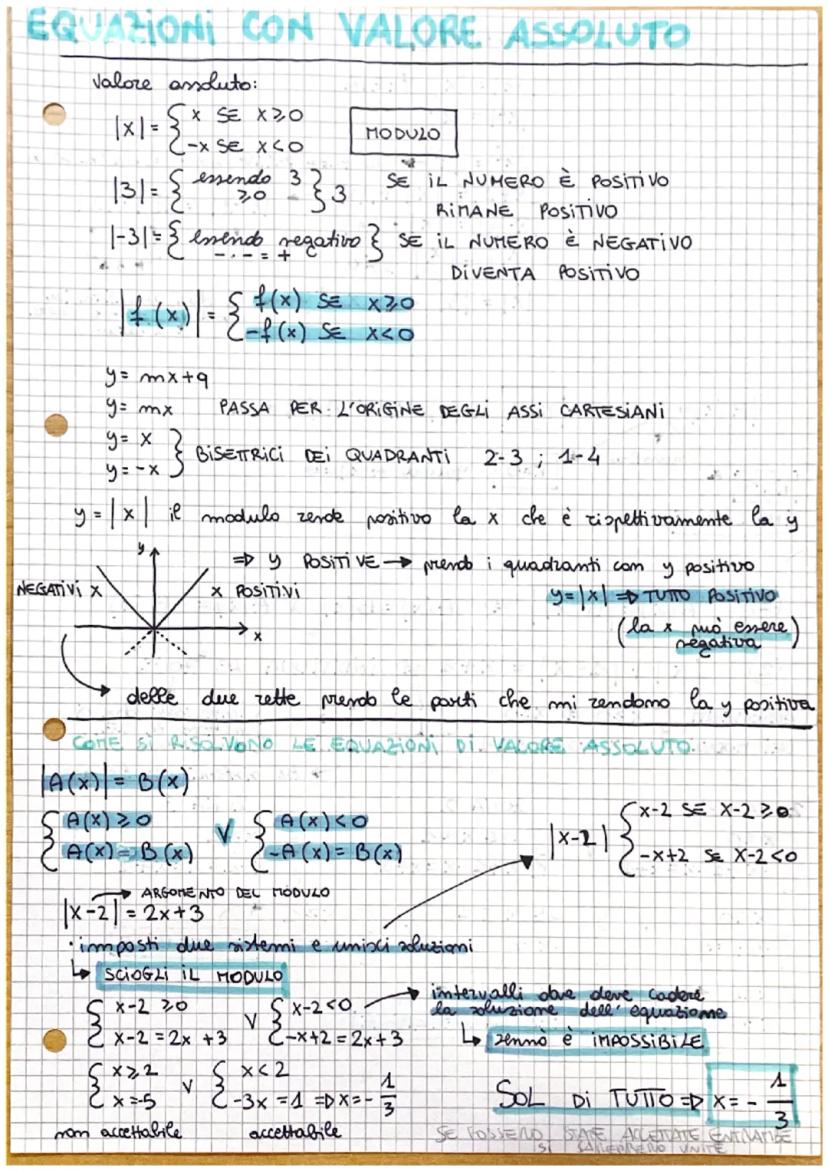 EQUAZIONI CON VALORE ASSOLUTO
Valore assoluto:
|x| = { x SE x≥0
-x SE x<0
MODULO
|3| = { essendo 3 ≥0 } 3
SE IL NUMERO È POSITIVO
RIMANE POSITIVO
|-3| = { essendo negativo }
- · - = +
SE IL NUMERO È NEGATIVO
DIVENTA POSITIVO
|f(x)| = { f(x) SE x≥0
-f(x) SE x<0
y = mx+q
y = mx PASSA PER L'ORIGINE DEGLI ASSI CARTESIANI
y = x
y = -x } BISETTRICI DEI QUADRANTI 2-3 ; 1-4
y = |x| il modulo rende positivo la x che è rispettivamente la y
y
⇒ y POSITIVE → prendo i quadranti con y positivo
NEGATIVI x
x POSITIVI
y=|x| ⇒ TUTTO POSITIVO
x
(la x può essere negativa)
delle due rette prendo le parti che mi rendono la y positiva
COME SI RISOLVONO LE EQUAZIONI DI VALORE ASSOLUTO.
|A(x)| = B(x)
{ A(x) ≥ 0 V { A(x) < 0
A(x) = B(x) -A(x) = B(x)
|x-2| { x-2 SE x-2≥0
-x+2 SE x-2<0
→ ARGOMENTO DEL MODULO
|x-2| = 2x+3
· imposti due sistemi e unisci soluzioni
↳ SCIOGLI IL MODULO
{ x-2 ≥0 V { x-2<0
x-2 = 2x +3 -x+2 = 2x+3
→ intervalli dove deve cadere
la soluzione dell'equazione
↳ sennò è IMPOSSIBILE
{ x≥2 V { x<2
x=-5 -3x = 1 ⇒ x = - 1/3
non accettabile accettabile
SOL DI TUTTO ⇒ x = - 1/3
SE FOSSERO STATE ACCETTATE ENTRAMBE
SI SAREBBERO UNITE